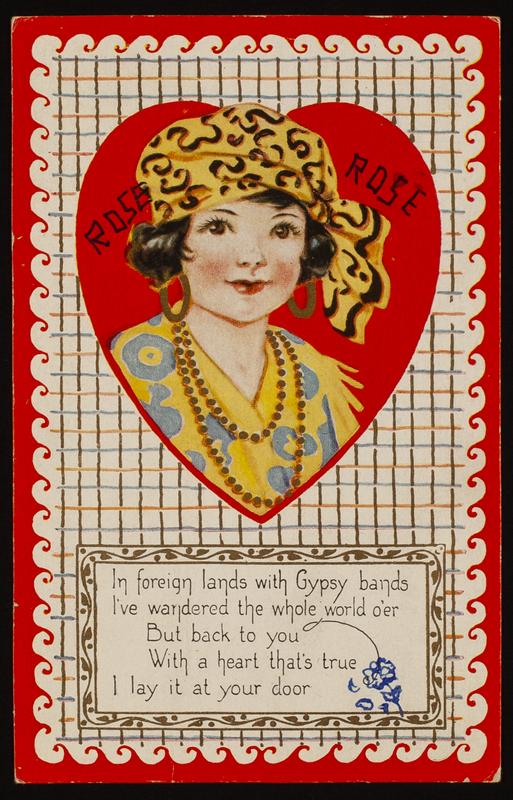 ROSE
ROSE
In foreign lands with Gypsy bands
I've wandered the whole world o'er
But back to you
With a heart that's true
I lay it at your door